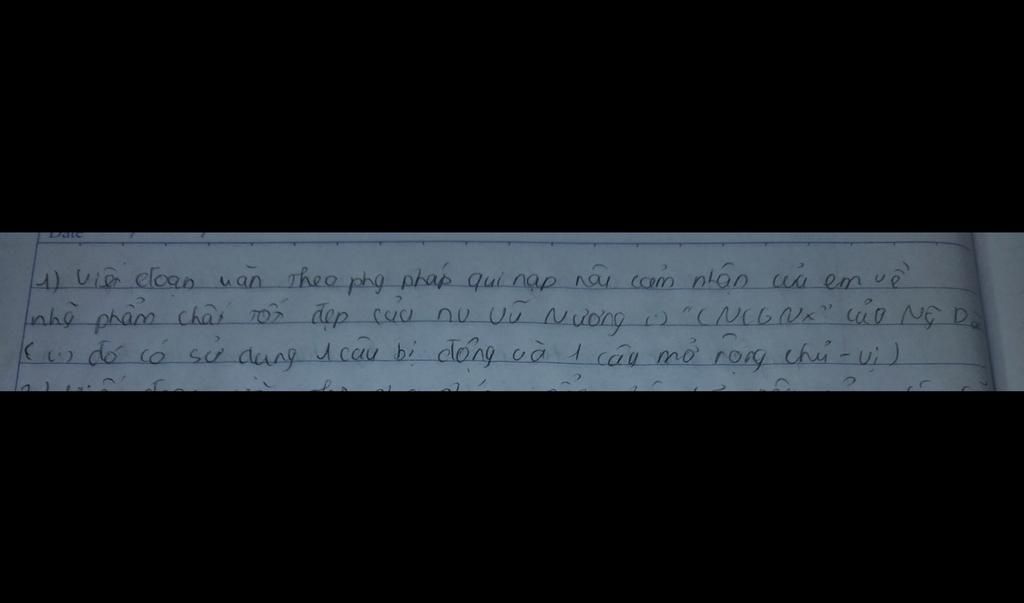 Date / /
1) Viết đoạn văn theo phg pháp qui nạp nêu cảm nhận của em về
nhg phẩm chất tốt đẹp của nv Vũ Nương (.) "CNCGNX" của Ng Dữ
( (.) đó có sử dụng 1 câu bị động và 1 câu mở rộng chủ - vị )